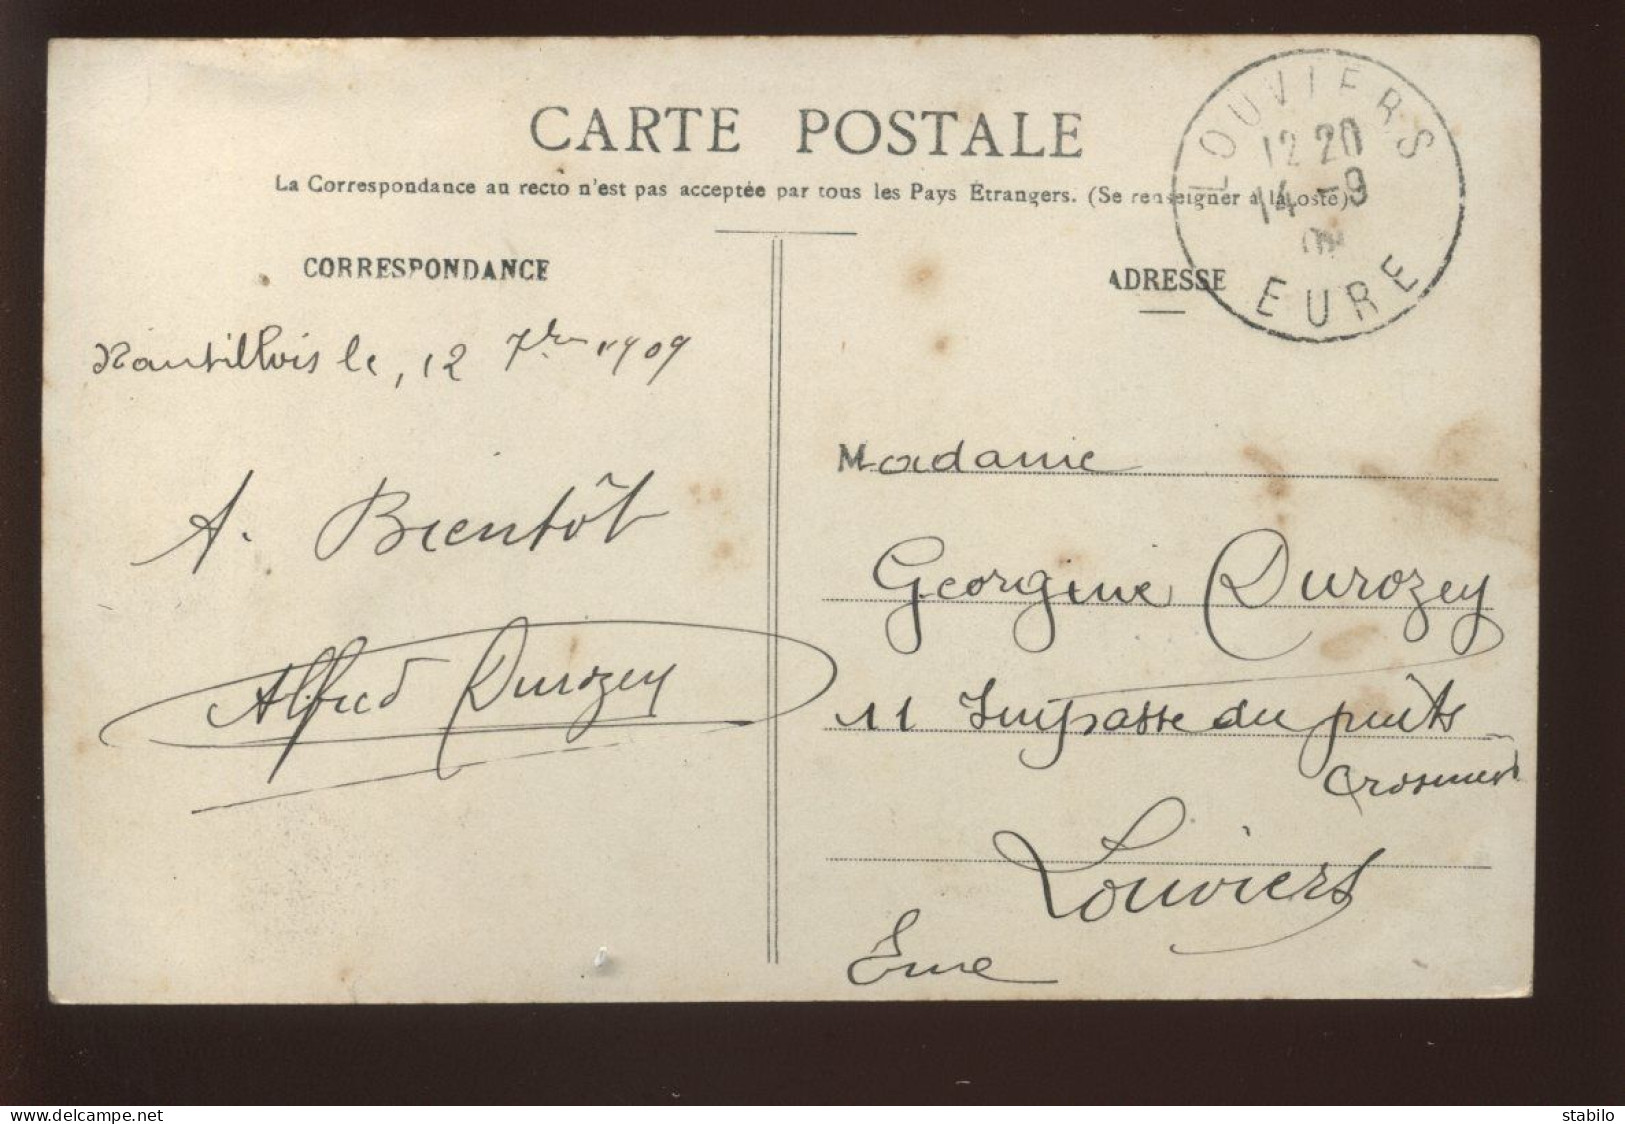 CARTE POSTALE
La Correspondance au recto n'est pas acceptée par tous les Pays Étrangers. (Se renseigner à la Poste)
LOUVIERS
12 20
14 -9
EURE
CORRESPONDANCE
ADRESSE
Nantillois le, 12 7bre 1909
A. Bientôt
Alfred Durozey
Madame
Georgine Durozey
11 Impasse du puits
Louviers
Eure
delcampe.net
stabilo